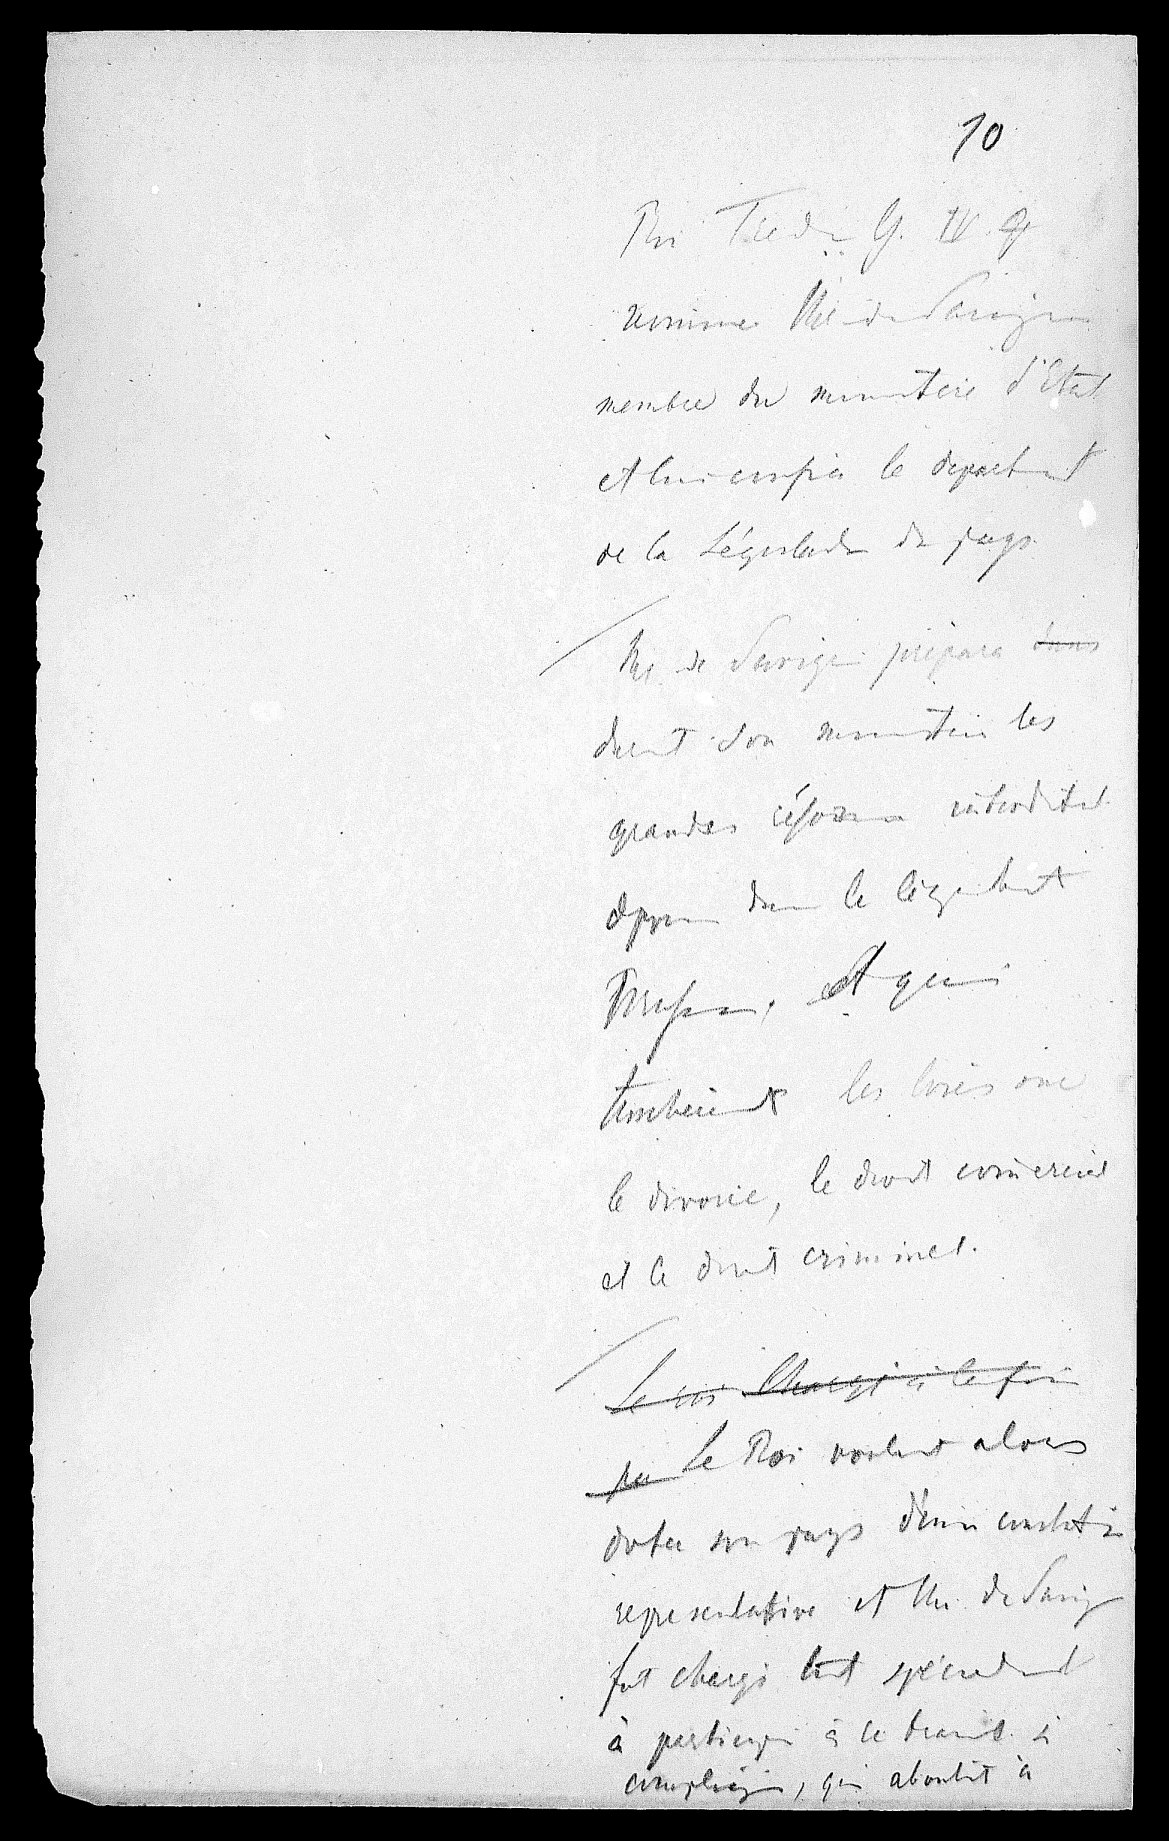 10
Roi G. IV
nomme Mr de Savigny
membre du ministère d'Etat
et lui confia le departmt
de la Législation du pays
Mr de Savigny prépara dans
durant son ministère les
grandes réformes introduites
depuis dans la législat
Prusse, et qui
touchèrent les lois sur
le divorce, le droit comercial
et le droit criminel.
Le roi chargé à la foi
par Le Roi voulut alors
doter son pays d'une constitution
representative et Mr de Savigny
fut chargé tout spécialement
à participer à ce travail si
compliqué, qui aboutit à